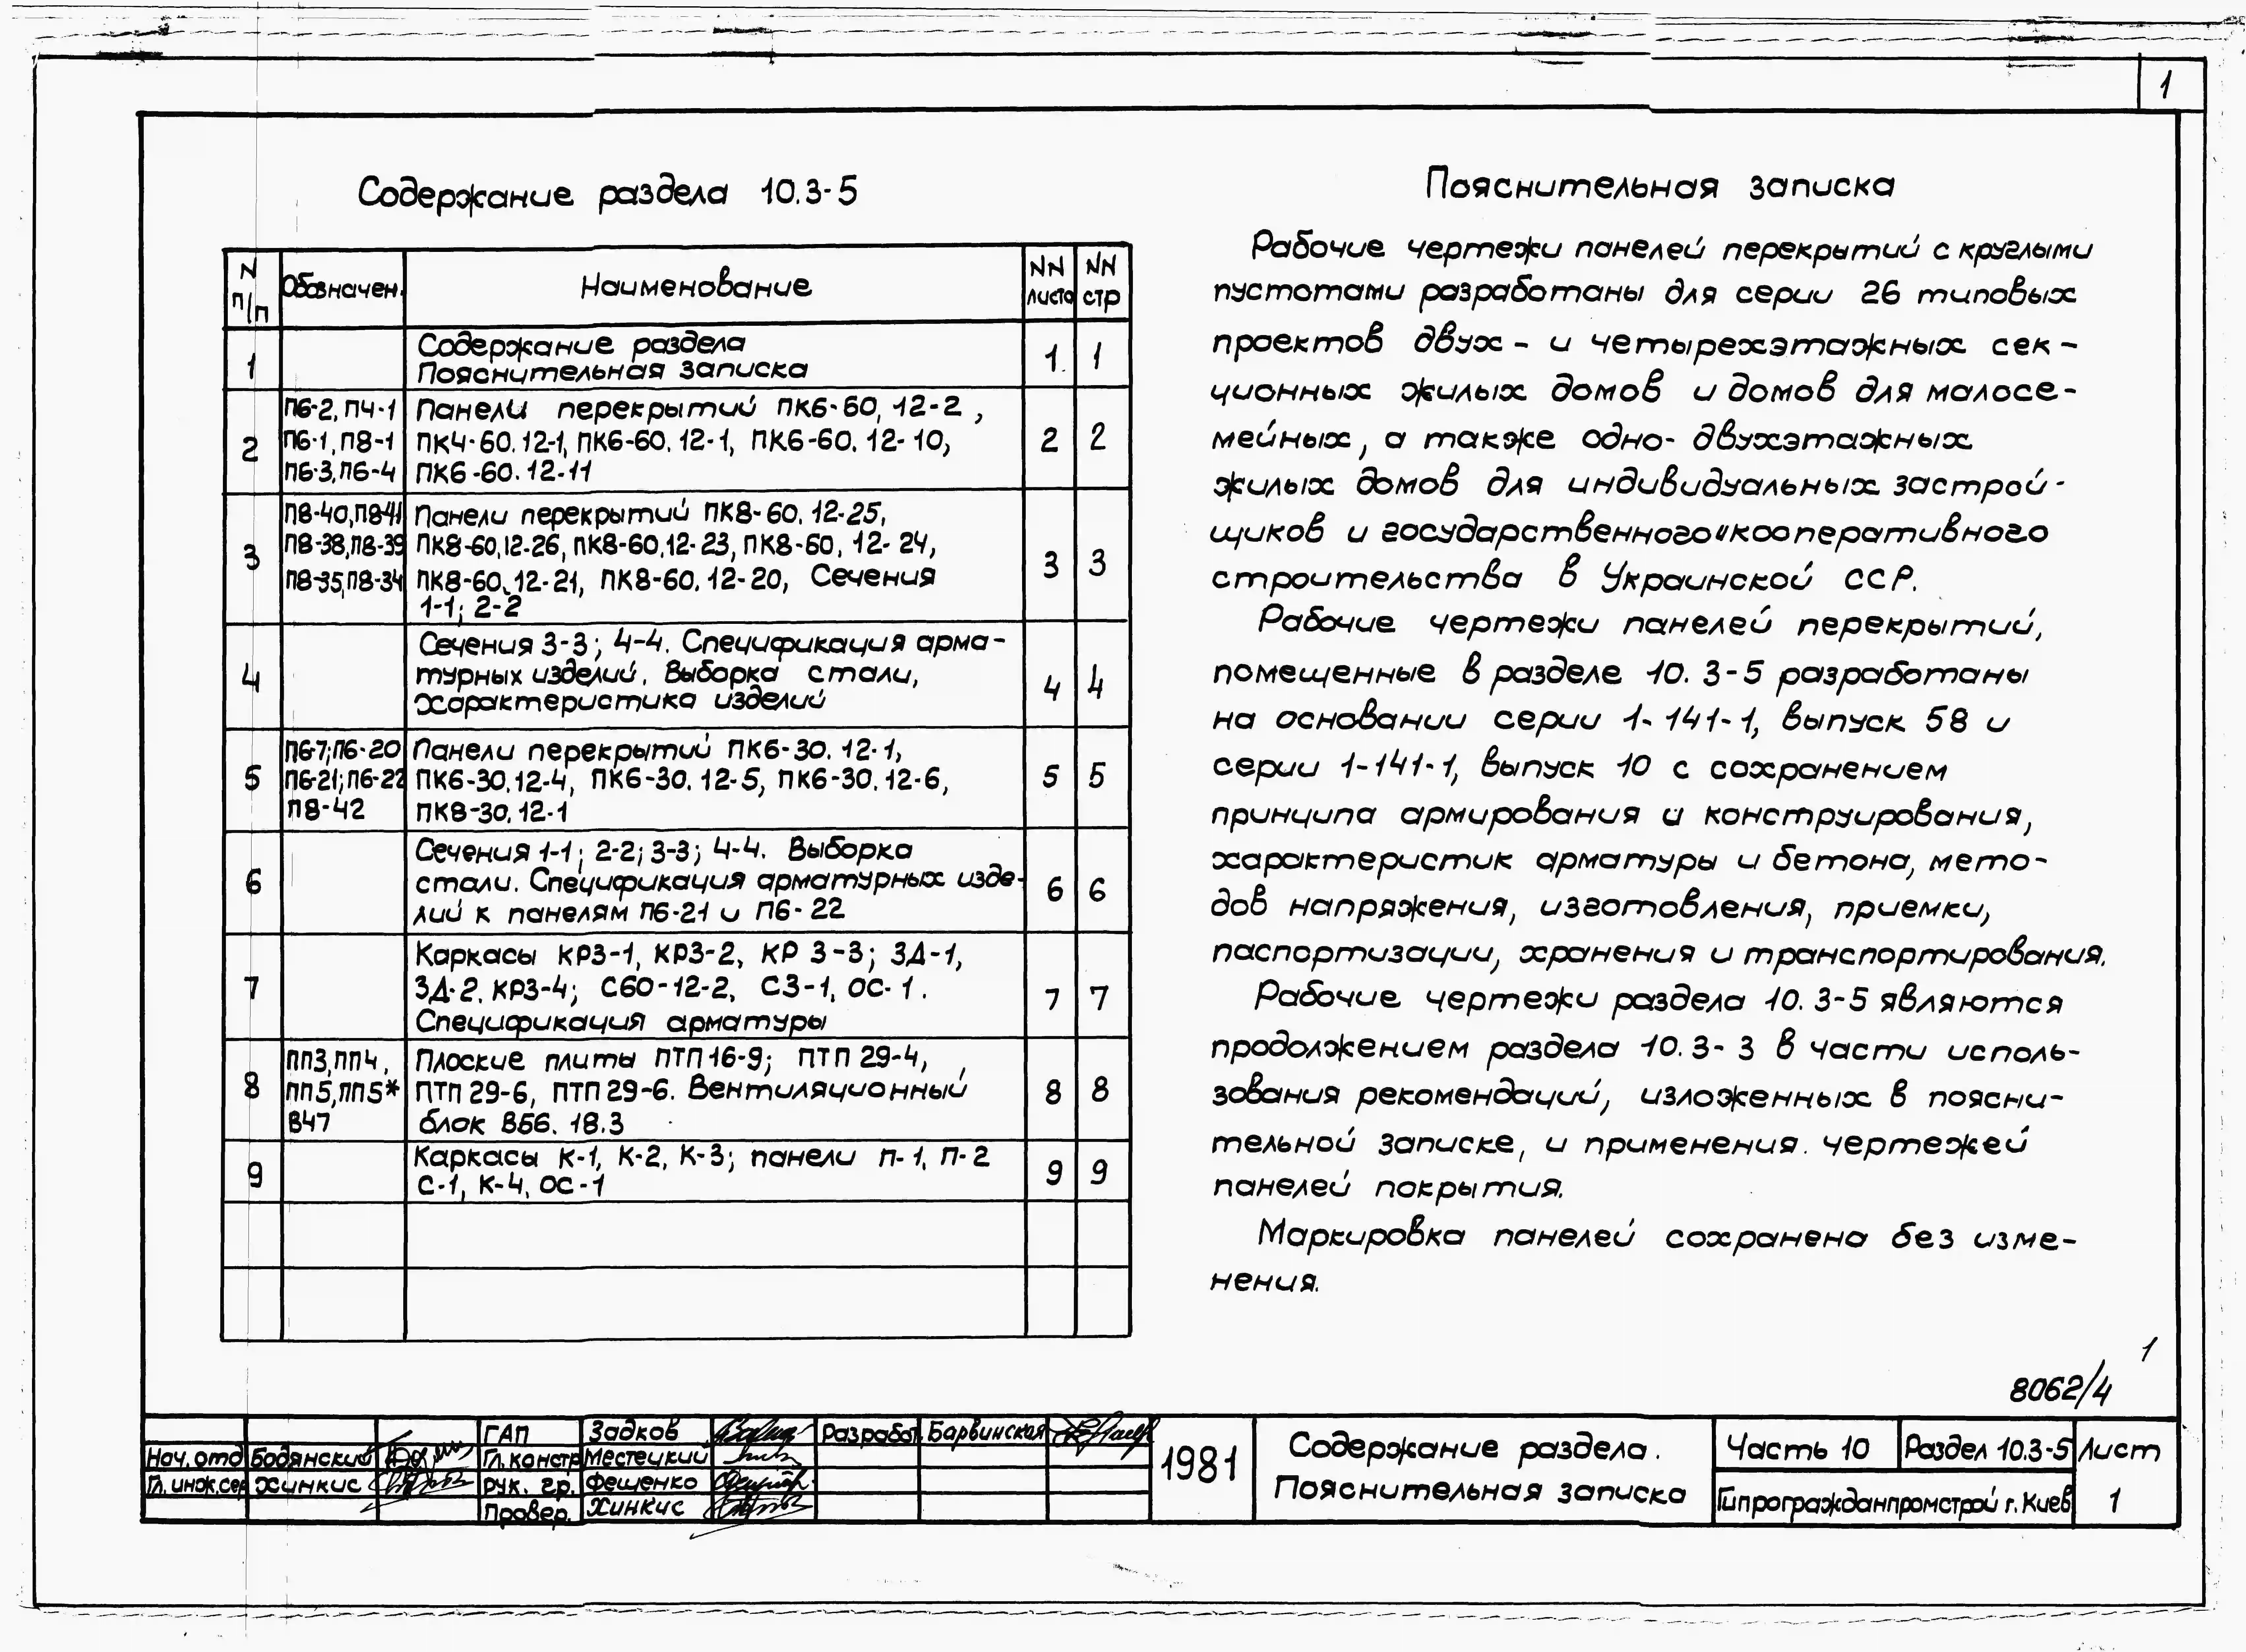 1
Содержание раздела 10.3-5
N п/п
Обозначен.
Наименование
NN листо
NN стр
1
Содержание раздела
Пояснительная записка
1
1
2
П6-2, П4-1
П6-1, П8-1
П6-3, П6-4
Панели перекрытий ПК6-60.12-2,
ПК4-60.12-1, ПК6-60.12-1, ПК6-60.12-10,
ПК6-60.12-11
2
2
3
П8-40, П8-41
П8-38, П8-39
П8-35, П8-34
Панели перекрытий ПК8-60.12-25,
ПК8-60.12-26, ПК8-60.12-23, ПК8-60.12-24,
ПК8-60.12-21, ПК8-60.12-20, Сечения
1-1; 2-2
3
3
4
Сечения 3-3; 4-4. Спецификация арма-
турных изделий. Выборка стали,
характеристика изделий
4
4
5
П6-7; П6-20
П6-21; П6-22
П8-42
Панели перекрытий ПК6-30.12-1,
ПК6-30.12-4, ПК6-30.12-5, ПК6-30.12-6,
ПК8-30.12-1
5
5
6
Сечения 1-1; 2-2; 3-3; 4-4. Выборка
стали. Спецификация арматурных изде-
лий к панелям П6-21 и П6-22
6
6
7
Каркасы КР3-1, КР3-2, КР 3-3; ЗД-1,
ЗД-2. КР3-4; С60-12-2, С3-1, ОС-1.
Спецификация арматуры
7
7
8
ПП3, ПП4,
ПП5, ПП5*
В47
Плоские плиты ПТП 16-9; ПТП 29-4,
ПТП 29-6, ПТП 29-6. Вентиляционный
блок ВБ6.18.3
8
8
9
Каркасы К-1, К-2, К-3; панели П-1, П-2
С-1, К-4, ОС-1
9
9
Пояснительная записка
Рабочие чертежи панелей перекрытий с круглыми
пустотами разработаны для серии 26 типовых
проектов двух- и четырехэтажных сек-
ционных жилых домов и домов для малосе-
мейных, а также одно- двухэтажных
жилых домов для индивидуальных застрой-
щиков и государственного и кооперативного
строительства в Украинской ССР.
Рабочие чертежи панелей перекрытий,
помещенные в разделе 10.3-5 разработаны
на основании серии 1-141-1, выпуск 58 и
серии 1-141-1, выпуск 10 с сохранением
принципа армирования и конструирования,
характеристик арматуры и бетона, мето-
дов напряжения, изготовления, приемки,
паспортизации, хранения и транспортирования.
Рабочие чертежи раздела 10.3-5 являются
продолжением раздела 10.3-3 в части исполь-
зования рекомендаций, изложенных в поясни-
тельной записке, и применения чертежей
панелей покрытия.
Маркировка панелей сохранена без изме-
нения.
1
8062/4
ГАП Задков Разработ. Барвинская
Нач. отд Бодянский Гл. констр Местецкий
Гл. инж. сер Хинкис Рук. гр. Фещенко
Провер. Хинкис
1981
Содержание раздела.
Пояснительная записка
Часть 10
Раздел 10.3-5
Лист
Гипрогражданпромстрой г. Киев
1